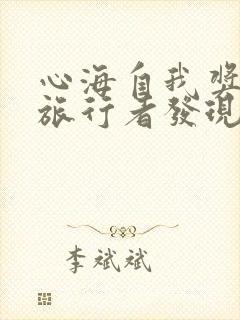 心海自我奬
旅行者發現
李斌斌